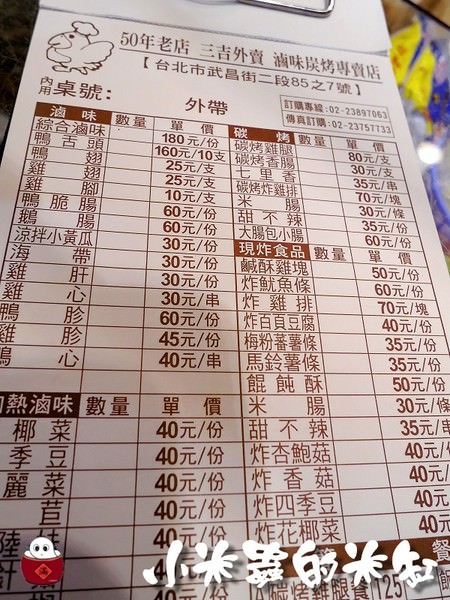 50年老店 三吉外賣 滷味炭烤專賣店
【台北市武昌街二段85之7號】
內用 桌號:
外帶
訂購專線:02-23897063
傳真訂購:02-23757733
滷味 數量 單價
綜合滷味 180元/份
鴨舌頭 160元/10支
鴨翅 25元/支
雞翅 25元/支
雞腳 10元/支
鴨脆腸 60元/份
鵝腸 60元/份
涼拌小黃瓜 30元/份
海帶 30元/份
雞肝 30元/份
雞心 30元/串
鴨胗 60元/份
雞胗 45元/份
鴨心 40元/串
熱滷味 數量 單價
椰菜 40元/份
季豆 40元/份
麗菜 40元/份
苣 40元/份
陸 40元/份
40元/份
碳烤 數量 單價
碳烤雞腿 80元/支
碳烤香腸 30元/支
七里香 35元/串
碳烤炸雞排 70元/塊
米腸 30元/條
甜不辣 35元/份
大腸包小腸 60元/份
現炸食品 數量 單價
鹹酥雞塊 50元/份
炸魷魚條 60元/份
炸雞排 70元/塊
炸百頁豆腐 40元/份
梅粉蕃薯條 35元/份
馬鈴薯條 35元/份
餛飩酥 50元/份
米腸 30元/條
甜不辣 35元/串
炸杏鮑菇 40元/份
炸香菇 40元/份
炸四季豆 40元/份
炸花椰菜 40元/份
餐
A碳烤雞腿食 125
小米蟲的米缸